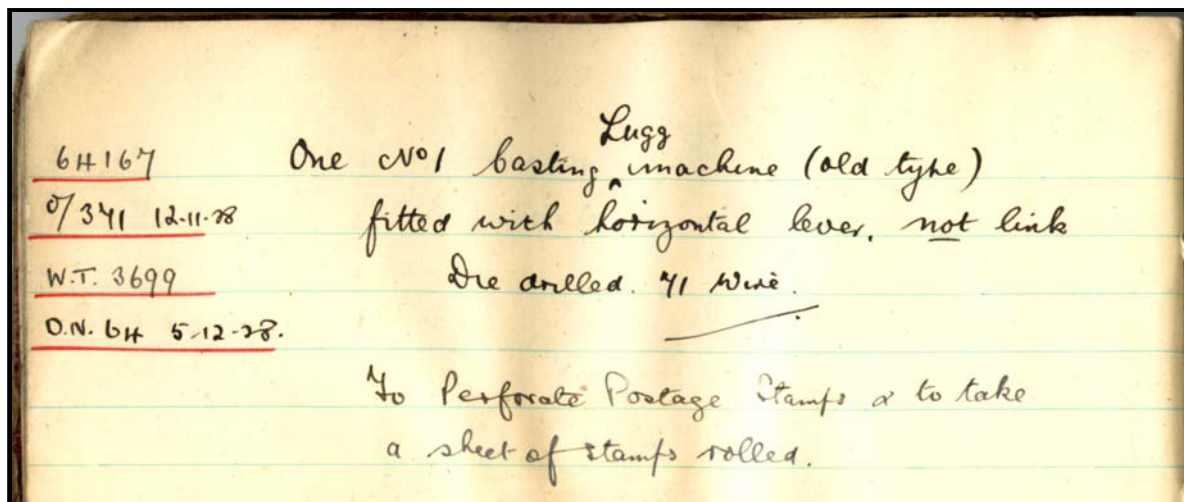 6H167
O/371 12-11-28
W.T. 3699
D.N. 6H 5-12-28.
Lugg
One No 1 casting ‸ machine (old type)
fitted with horizontal lever, not link
Die drilled. 71 Wire.
To Perforate Postage Stamps & to take
a sheet of stamps rolled.